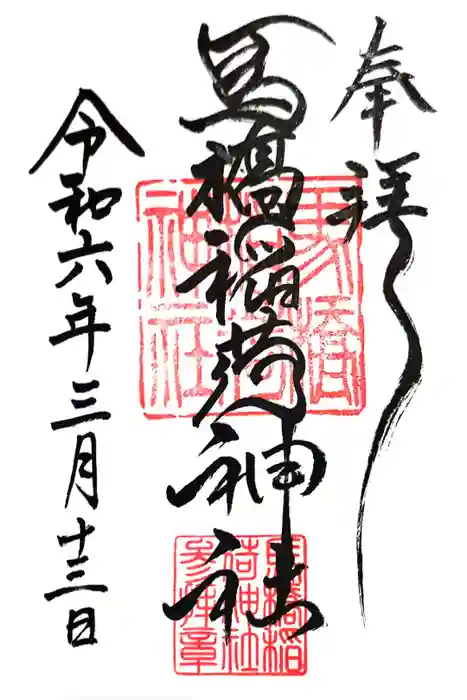 奉拝
馬橋稲荷神社
馬橋稲荷神社
馬橋稲荷神社参拝章
令和六年三月十三日